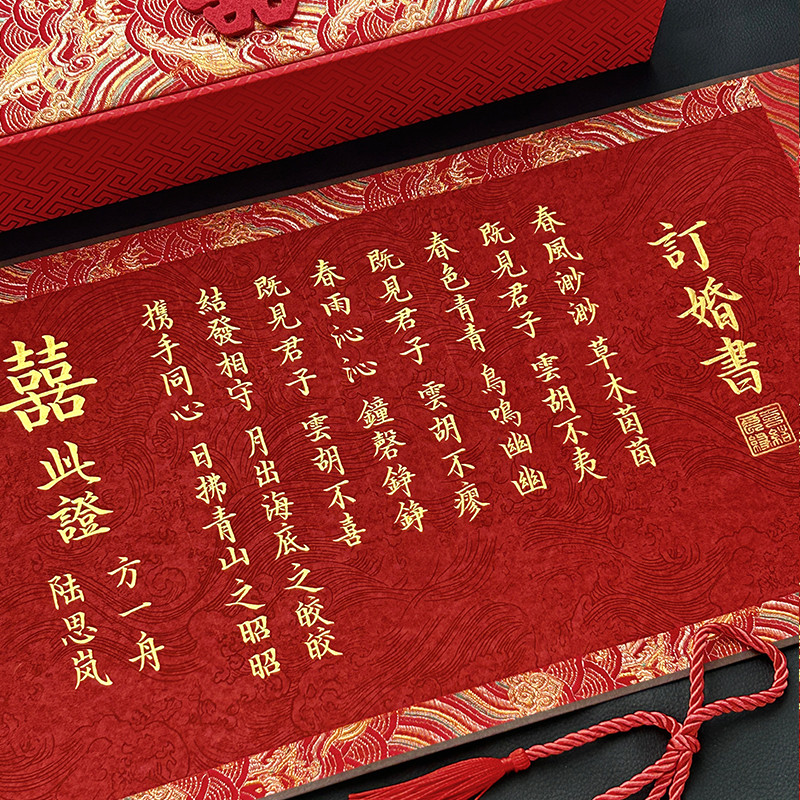 訂婚書
春風渺渺 草木茵茵
既見君子 雲胡不夷
春色青青 鳥鳴幽幽
既見君子 雲胡不瘳
春雨沁沁 鐘磬錚錚
既見君子 雲胡不喜
結發相守 月出海底之皎皎
攜手同心 日拂青山之昭昭
囍
此證
方一舟
陆思岚